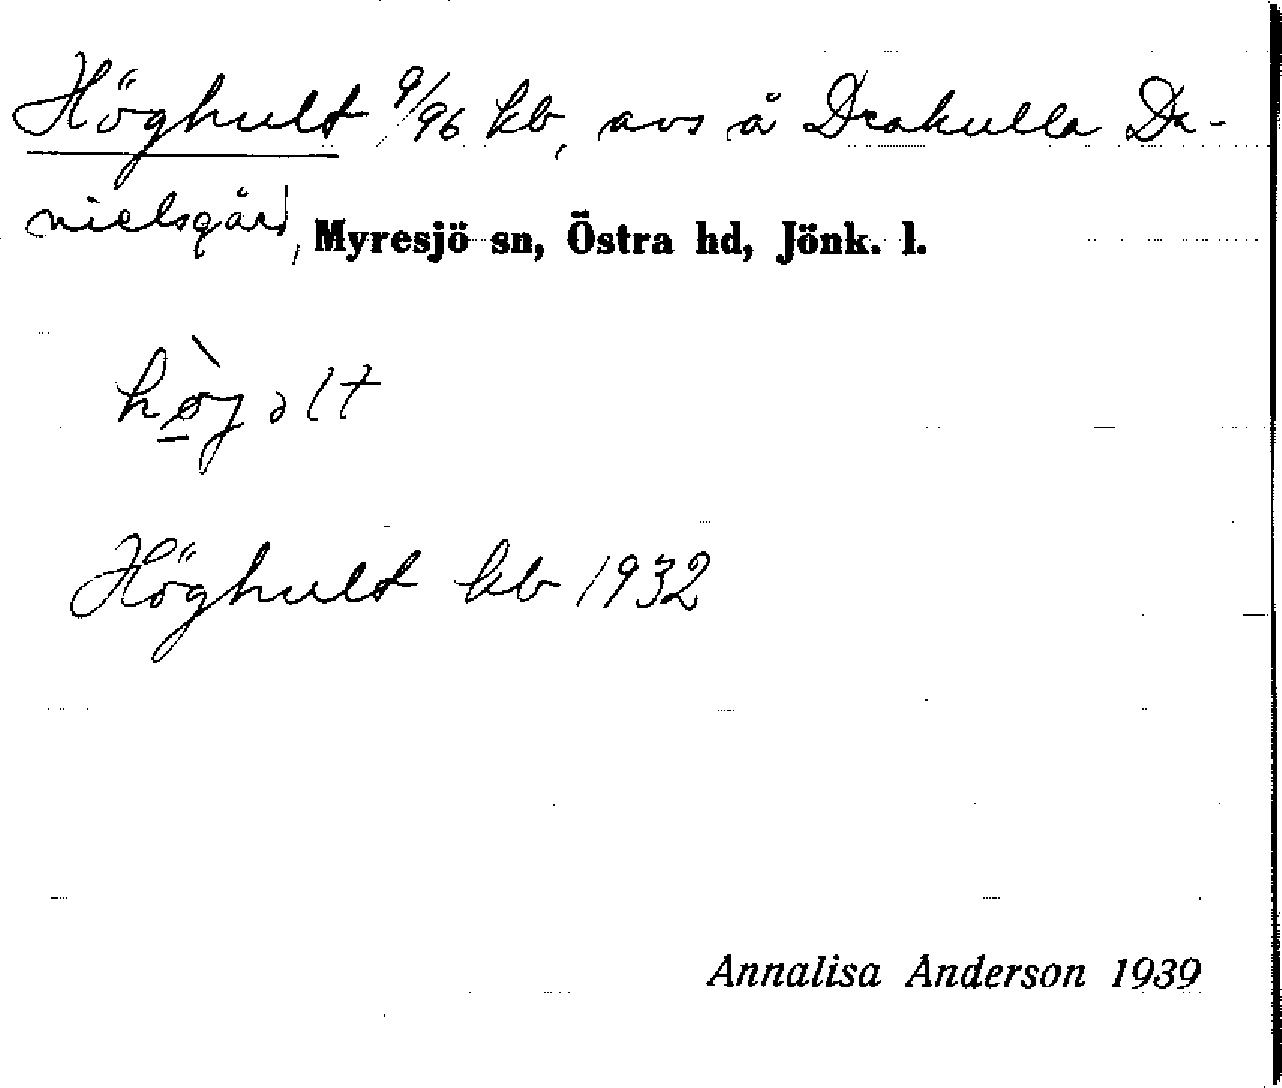 Höghult 9/96 kb, avs å Drakulla Da-
nielsgård, Myresjö sn, Östra hd, Jönk. l.
Höghult kb 1932
Annalisa Anderson 1939